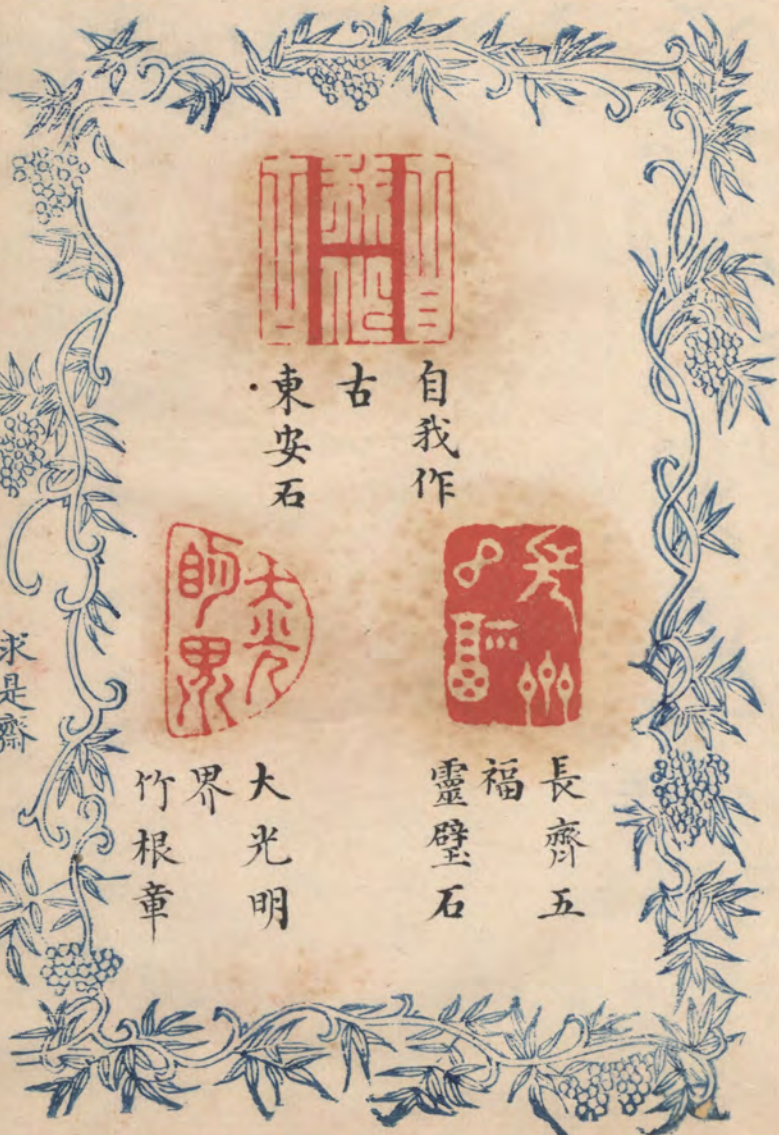 自我作
古
東安石
長齊五
福
靈璧石
大光明
界
竹根章
求是齋